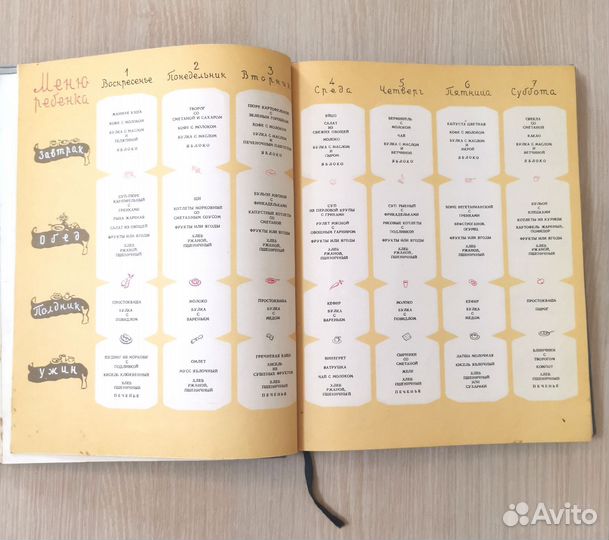 Меню
ребенка
1
Воскресенье
2
Понедельник
3
Вторник
4
Среда
5
Четверг
6
Пятница
7
Суббота
Завтрак
МАННАЯ КАША
КОФЕ С МОЛОКОМ
БУЛКА С МАСЛОМ
И
ТЕЛЯТИНОЙ
ЯБЛОКО
ТВОРОГ
СО
СМЕТАНОЙ И САХАРОМ
КОФЕ С МОЛОКОМ
БУЛКА С МАСЛОМ
ЯБЛОКО
ПЮРЕ КАРТОФЕЛЬНОЕ
С
ЗЕЛЕНЫМ ГОРОШКОМ
КОФЕ С МОЛОКОМ
БУЛКА С МАСЛОМ
И
ПЕЧЕНОЧНЫМ ПАШТЕТОМ
ЯБЛОКО
ЯЙЦО
САЛАТ
ИЗ
СВЕЖИХ ОВОЩЕЙ
МОЛОКО
БУЛКА С МАСЛОМ
И
СЫРОМ
ЯБЛОКО
ВЕРМИШЕЛЬ
С
МОЛОКОМ
ЧАЙ
БУЛКА С МАСЛОМ
И
ВЕТЧИНОЙ
ЯБЛОКО
КАПУСТА ЦВЕТНАЯ
КОФЕ С МОЛОКОМ
БУЛКА С МАСЛОМ
И
ИКРОЙ
ЯБЛОКО
СВЕКЛА
СО
СМЕТАНОЙ
КАКАО
БУЛКА С МАСЛОМ
И
ВЕТЧИНОЙ
ЯБЛОКО
Обед
СУП-ПЮРЕ
КАРТОФЕЛЬНЫЙ
С
ГРЕНКАМИ
РЫБА ЖАРЕНАЯ
САЛАТ ИЗ ОВОЩЕЙ
ФРУКТЫ ИЛИ ЯГОДЫ
ХЛЕБ
РЖАНОЙ,
ПШЕНИЧНЫЙ
ЩИ
КОТЛЕТЫ МОРКОВНЫЕ
СО
СМЕТАННЫМ СОУСОМ
ФРУКТЫ ИЛИ ЯГОДЫ
ХЛЕБ
РЖАНОЙ,
ПШЕНИЧНЫЙ
БУЛЬОН МЯСНОЙ
С
ФРИКАДЕЛЬКАМИ
КАПУСТНЫЕ КОТЛЕТЫ
СО
СМЕТАНОЙ
ФРУКТЫ ИЛИ ЯГОДЫ
ХЛЕБ
РЖАНОЙ,
ПШЕНИЧНЫЙ
СУП
ИЗ ПЕРЛОВОЙ КРУПЫ
С ГРИБАМИ
КОТЛЕТЫ МЯСНЫЕ
С
ОВОЩНЫМ ГАРНИРОМ
ФРУКТЫ ИЛИ ЯГОДЫ
ХЛЕБ
РЖАНОЙ,
ПШЕНИЧНЫЙ
СУП РЫБНЫЙ
С
ФРИКАДЕЛЬКАМИ
РИСОВЫЕ КОТЛЕТЫ
С
ПОДЛИВКОЙ
ФРУКТЫ ИЛИ ЯГОДЫ
ХЛЕБ
РЖАНОЙ,
ПШЕНИЧНЫЙ
БОРЩ ВЕГЕТАРИАНСКИЙ
С
ГРЕНКАМИ
БЕФСТРОГАНОВ,
ОГУРЕЦ
ФРУКТЫ ИЛИ ЯГОДЫ
ХЛЕБ
РЖАНОЙ,
ПШЕНИЧНЫЙ
БУЛЬОН
С
КЛЕЦКАМИ
КОТЛЕТЫ ИЗ КУРИЦЫ
КАРТОФЕЛЬ ЖАРЕНЫЙ,
ПОМИДОР
ФРУКТЫ ИЛИ ЯГОДЫ
ХЛЕБ
РЖАНОЙ,
ПШЕНИЧНЫЙ
Полдник
ПРОСТОКВАША
БУЛКА
С
ПОВИДЛОМ
МОЛОКО
БУЛКА
С
ВАРЕНЬЕМ
ПРОСТОКВАША
БУЛКА
С
МЕДОМ
КЕФИР
БУЛКА
С
ВАРЕНЬЕМ
МОЛОКО
БУЛКА
С
ПОВИДЛОМ
КЕФИР
БУЛКА
С
МЕДОМ
ПРОСТОКВАША
ПИРОГ
Ужин
ПУДИНГ ИЗ МОРКОВИ
С
ПОДЛИВКОЙ
КИСЕЛЬ КЛЮКВЕННЫЙ
ХЛЕБ
ПШЕНИЧНЫЙ
ПЕЧЕНЬЕ
ОМЛЕТ
МУСС ЯБЛОЧНЫЙ
ХЛЕБ
РЖАНОЙ,
ПШЕНИЧНЫЙ
ГРЕЧНЕВАЯ КАША
КИСЕЛЬ
ИЗ
СУШЕНЫХ ФРУКТОВ
ХЛЕБ
ПШЕНИЧНЫЙ
ПЕЧЕНЬЕ
ВИНЕГРЕТ
ВАТРУШКА
ЧАЙ С МОЛОКОМ
ХЛЕБ
РЖАНОЙ,
ПШЕНИЧНЫЙ
СЫРНИКИ
СО
СМЕТАНОЙ
ЖЕЛЕ
ХЛЕБ
ПШЕНИЧНЫЙ
ПЕЧЕНЬЕ
ЛАПША МОЛОЧНАЯ
КИСЕЛЬ ЯБЛОЧНЫЙ
ХЛЕБ
ПШЕНИЧНЫЙ
ИЛИ
СУХАРИКИ
БЛИНЧИКИ
С
ТВОРОГОМ
КОМПОТ
ХЛЕБ
ПШЕНИЧНЫЙ
ПЕЧЕНЬЕ
Avito